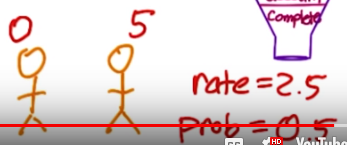 0 5
Complete
rate = 2.5
prob = 0.5
CC HD YouTube